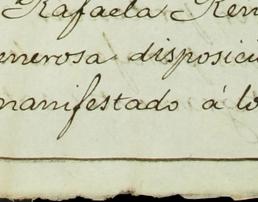 Rafaela Ren
enerosa disposici
manifestado á lo